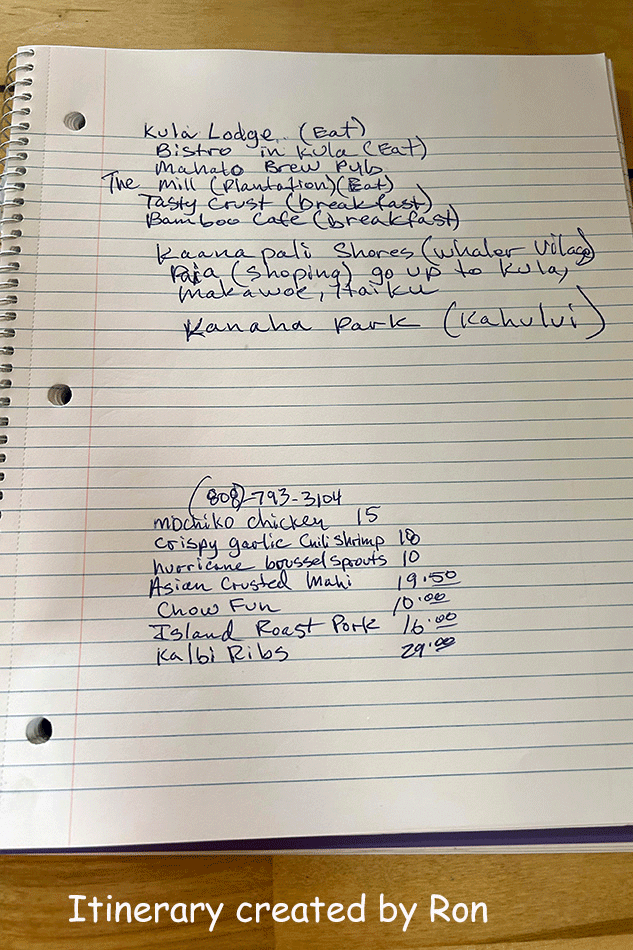 Kula Lodge (Eat)
Bistro in Kula (Eat)
Mahalo Brew Pub
The Mill (Plantation)(Eat)
Tasty Crust (breakfast)
Bamboo Cafe (breakfast)
Kaanapali Shores (whaler Village)
Paia (shoping) go up to Kula,
makawoe, Haiku
Kanaha Park (Kahului)
(808)-793-3104
mochiko chicken 15
crispy garlic Chili shrimp 18
hurricane broussel sprouts 10
Asian Crusted Mahi 19.50
Chow Fun 10.00
Island Roast Pork 16.00
Kalbi Ribs 29.00
Itinerary created by Ron